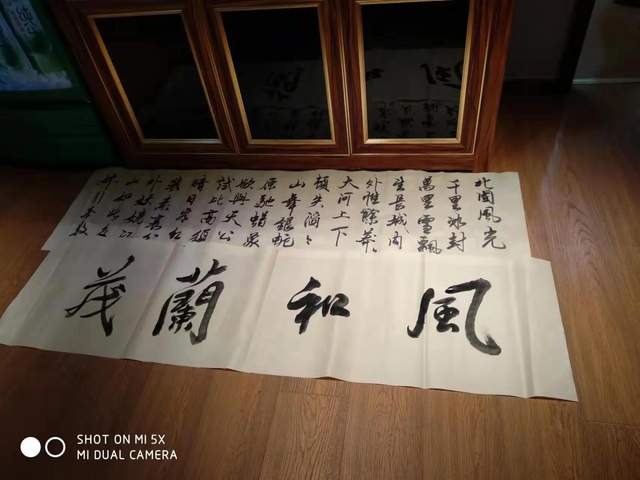 北國風光
千里冰封
萬里雪飄
望長城内
外惟餘莽〻
大河上下
頓失滔〻
山舞銀蛇
原馳蠟象
欲與天公
試比高須
晴日看紅
裝素裹分
外妖嬈江
山如此多
風和蘭茂
SHOT ON MI 5X
MI DUAL CAMERA